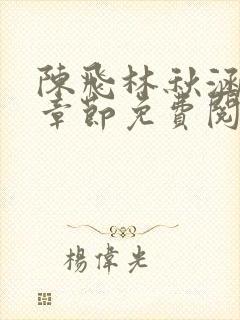 陳飛林秋涵
章節免費閱
楊偉光